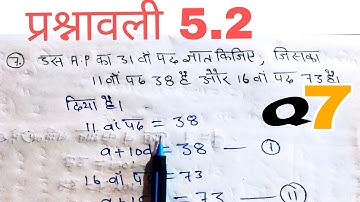 प्रश्नावली 5.2
⑦ उस A.P का 31 वाँ पद ज्ञात किजिए, जिसका
11 वाँ पद 38 है और 16 वाँ पद 73 है।
दिया है।
11 वाँ पद = 38
a+10d = 38 — ①
16 वाँ पद = 73
= 73 — ⑪
Q7